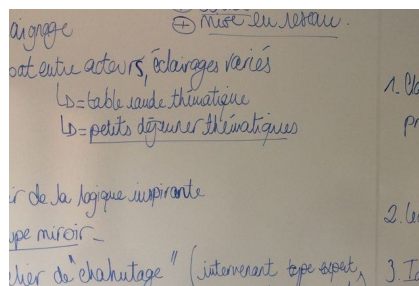 ⊕ mise en réseau.
aignage
bat entre acteurs, éclairages variés
↳ = table ronde thématique
↳ = petits déjeuner thématiques
ir de la logique inspirante
upe miroir -
elier de "chahutage" (intervenant type expert,
1.
pr
2. Le
3. Id